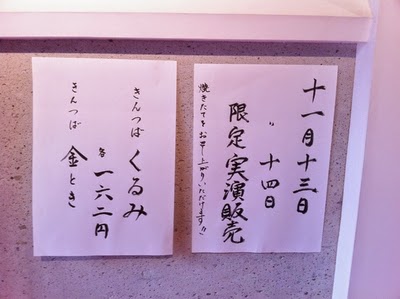 十一月十三日
〃 十四日
限定実演販売
焼きたてをお召し上がりいただけます!!
きんつば くるみ
各 一六二円
きんつば 金とき